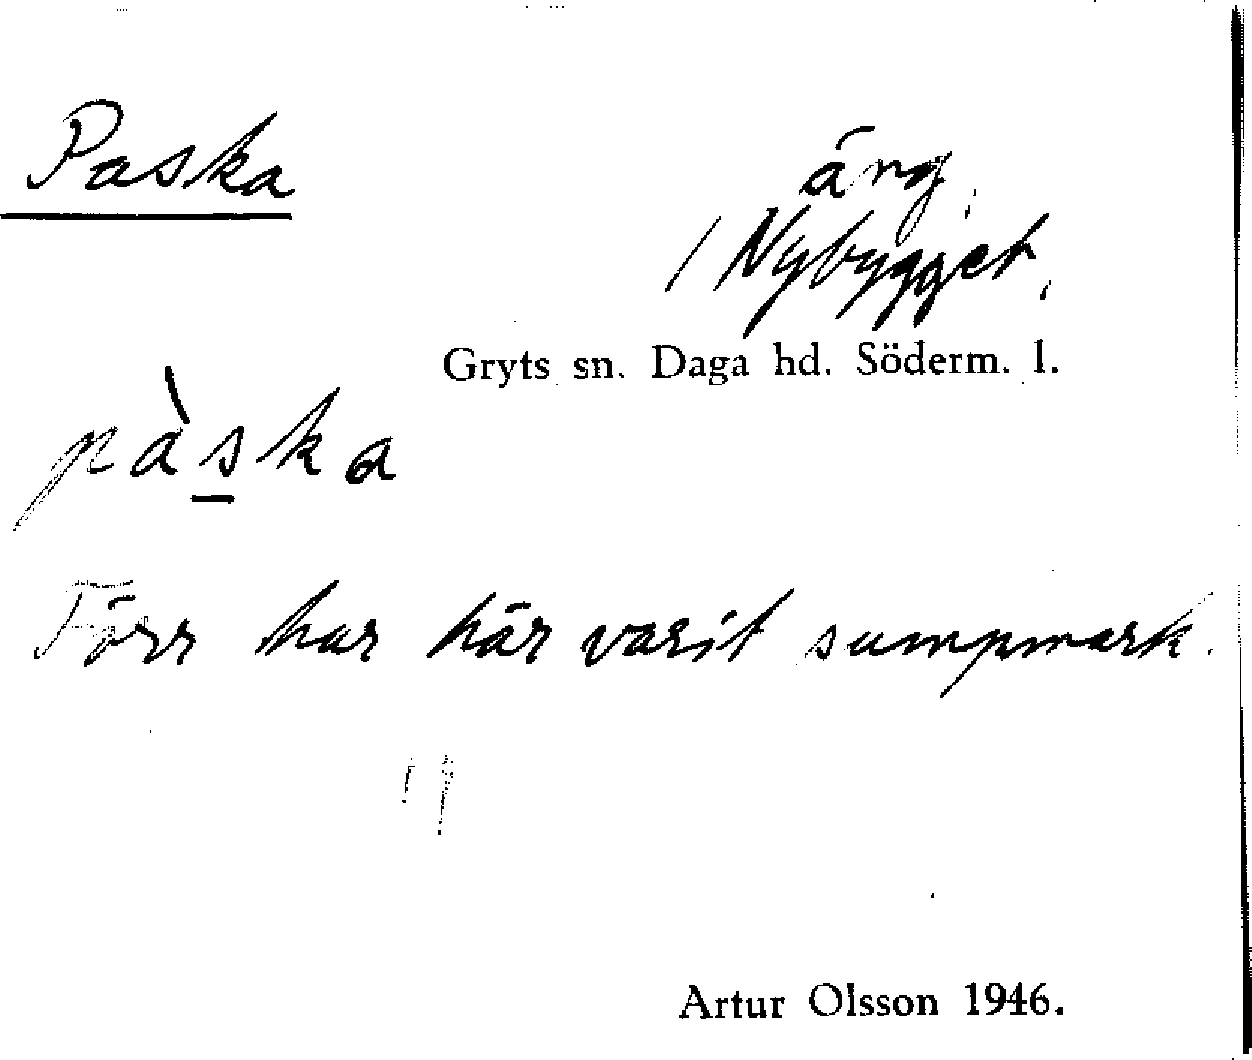 Paska
äng,
/ Nybygget,
Gryts sn. Daga hd. Söderm. l.
pàs̲ka
Förr har här varit sumpmark.
Artur Olsson 1946.